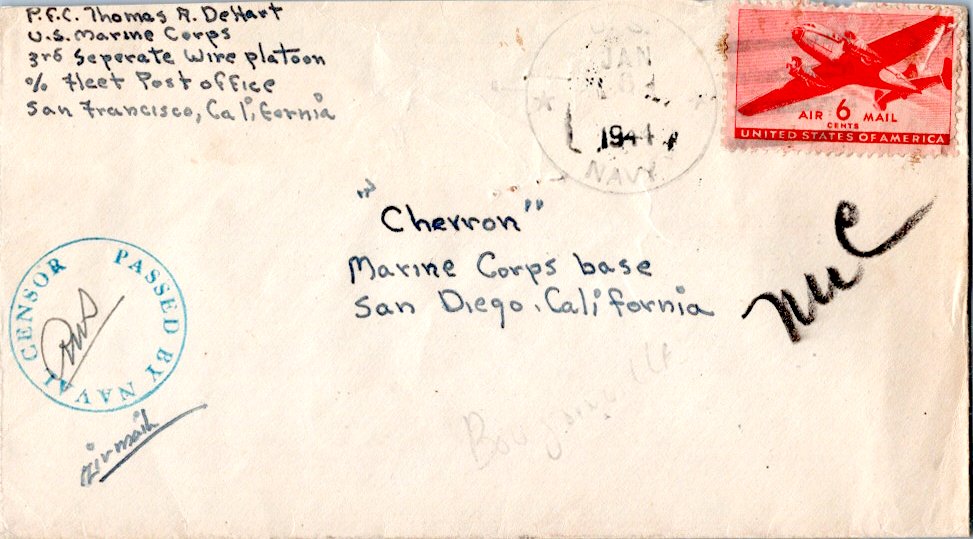 P.F.C. Thomas R. DeHart
U.S. Marine Corps
3rd Seperate Wire platoon
% Fleet Post office
San Francisco, California
JAN
1944
NAVY
AIR 6 MAIL
CENTS
UNITED STATES OF AMERICA
"Chevron"
Marine Corps base
San Diego, California
PASSED BY NAVAL CENSOR
airmail
Bougainville